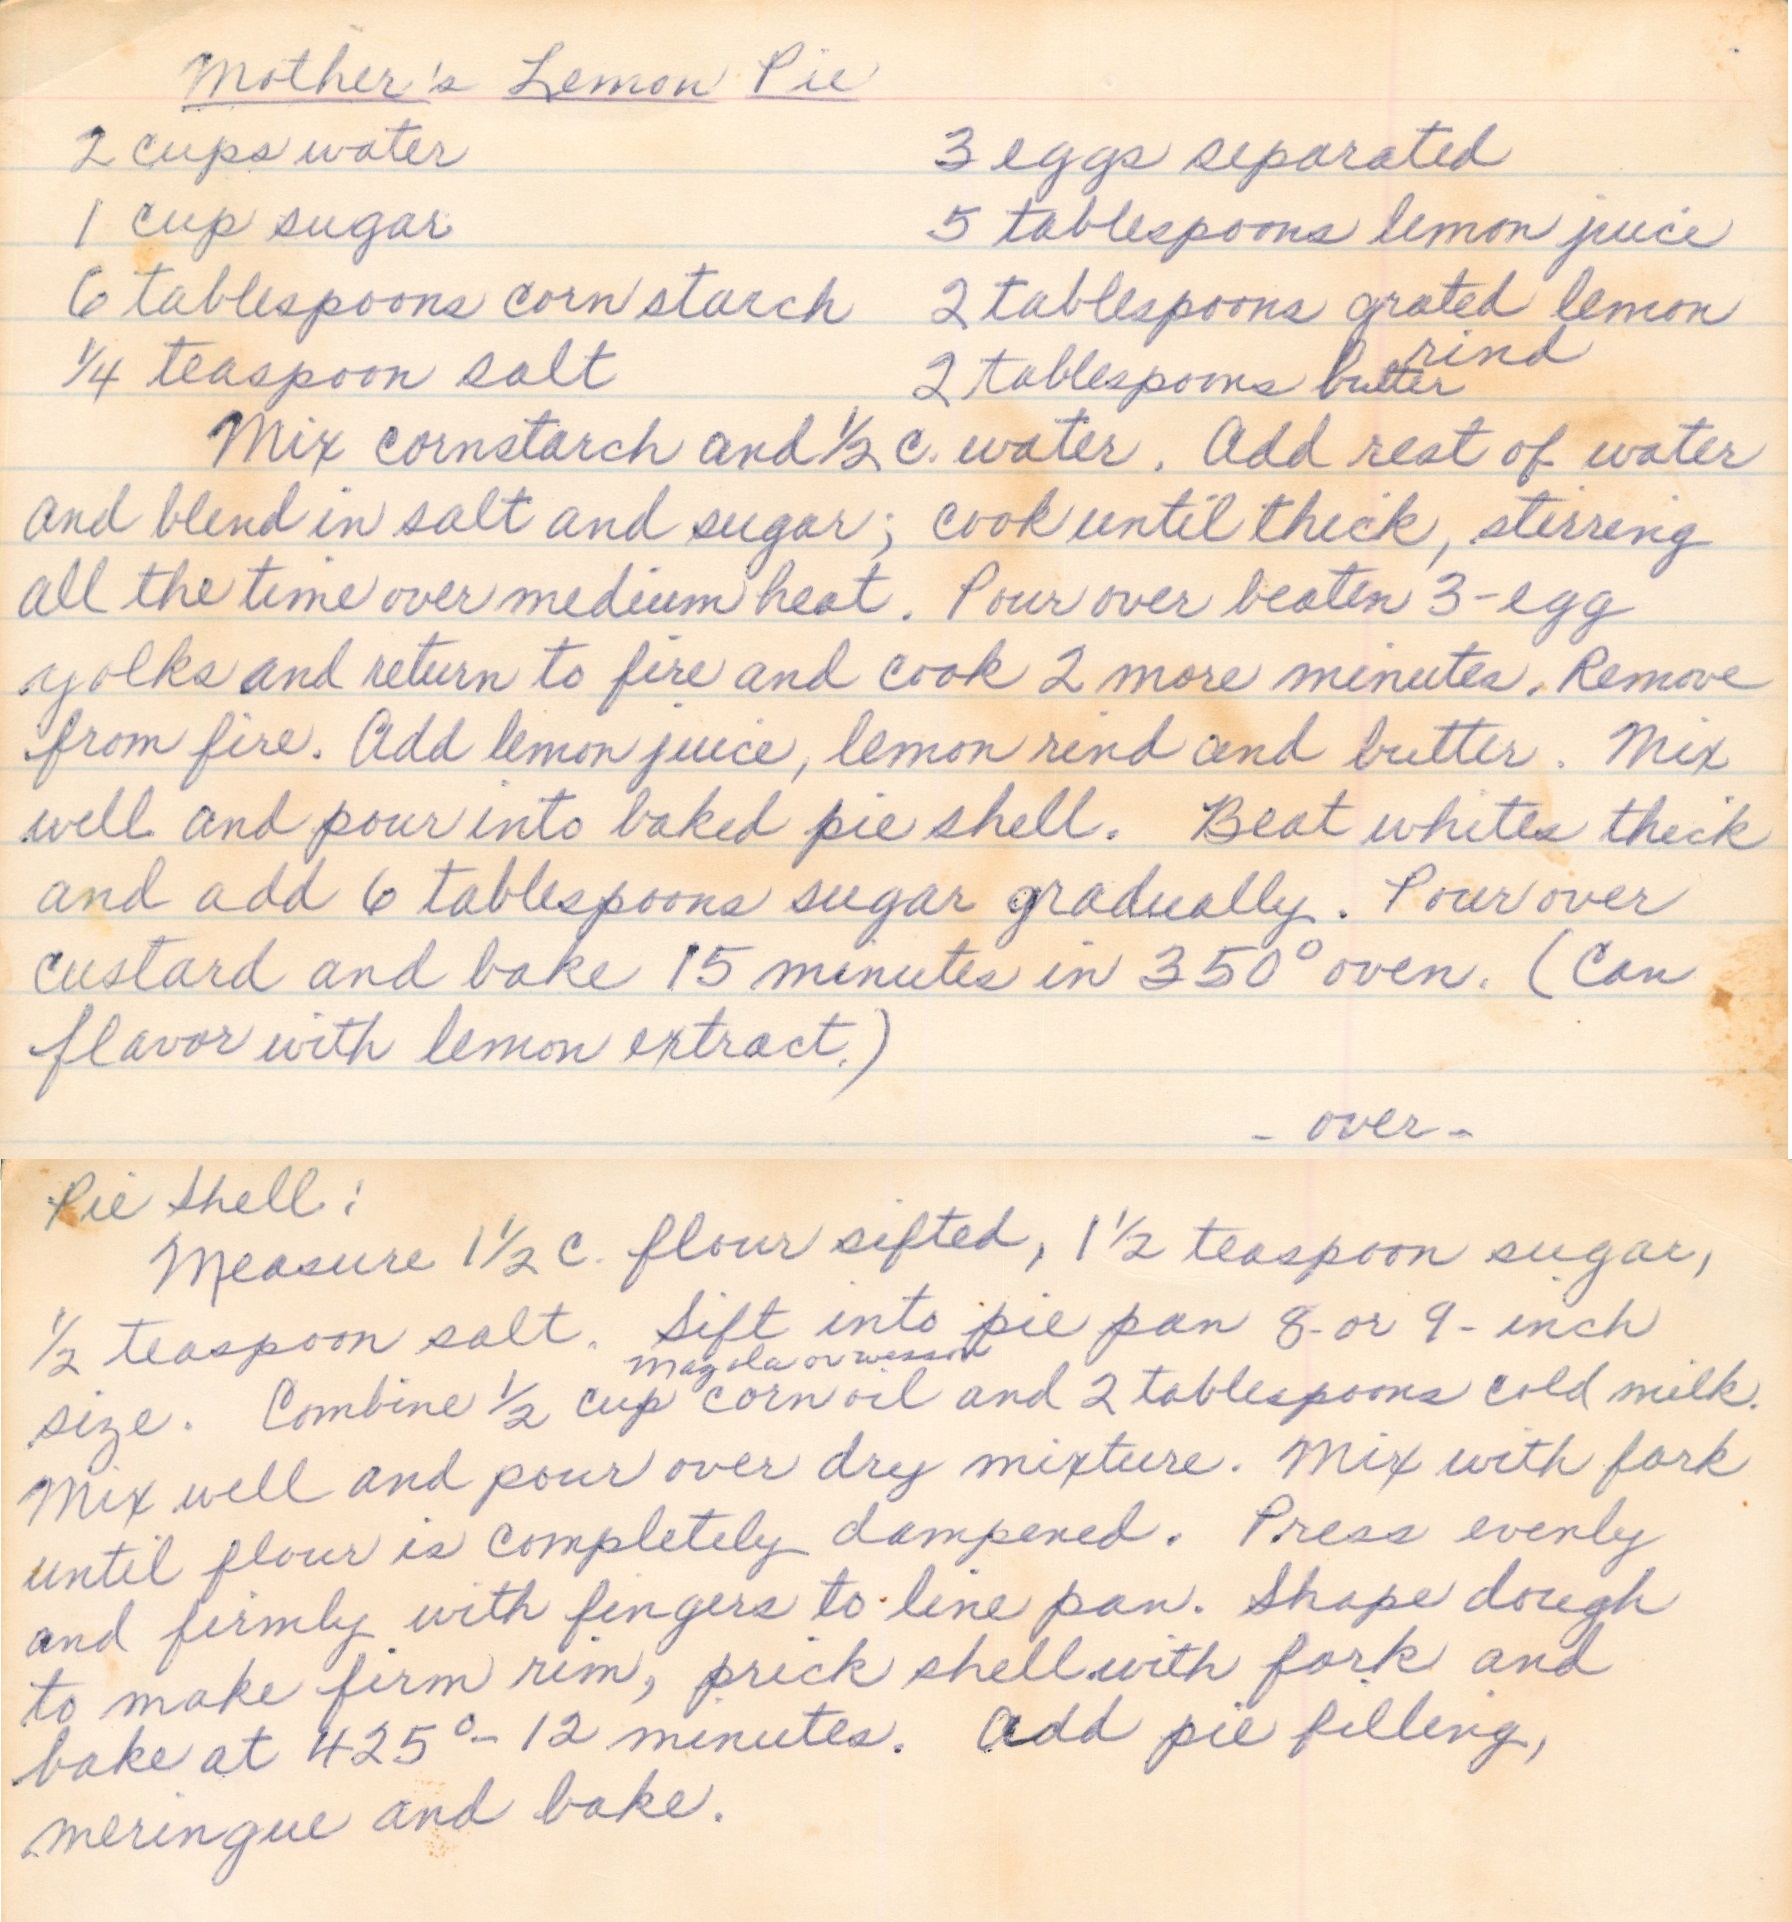 Mother's Lemon Pie
2 cups water
1 cup sugar
6 tablespoons cornstarch
1/4 teaspoon salt
3 eggs separated
5 tablespoons lemon juice
2 tablespoons grated lemon
rind
2 tablespoons butter
Mix cornstarch and 1/2 c. water. Add rest of water
and blend in salt and sugar; cook until thick, stirring
all the time over medium heat. Pour over beaten 3-egg
yolks and return to fire and cook 2 more minutes. Remove
from fire. Add lemon juice, lemon rind and butter. Mix
well and pour into baked pie shell. Beat whites thick
and add 6 tablespoons sugar gradually. Pour over
custard and bake 15 minutes in 350° oven. (Can
flavor with lemon extract.)
- over -
Pie Shell:
Measure 1 1/2 c. flour sifted, 1 1/2 teaspoon sugar,
1/2 teaspoon salt. Sift into pie pan 8- or 9-inch
Mazola or wesson
size. Combine 1/2 cup corn oil and 2 tablespoons cold milk.
Mix well and pour over dry mixture. Mix with fork
until flour is completely dampened. Press evenly
and firmly with fingers to line pan. Shape dough
to make firm rim, prick shell with fork and
bake at 425° - 12 minutes. Add pie filling,
meringue and bake.